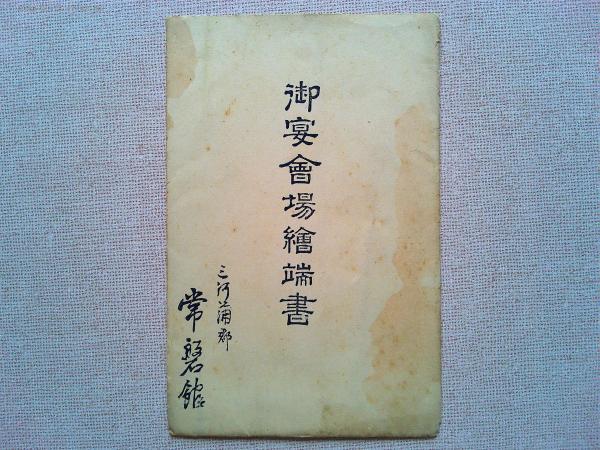 御宴會場繪端書
三河蒲郡
常磐館